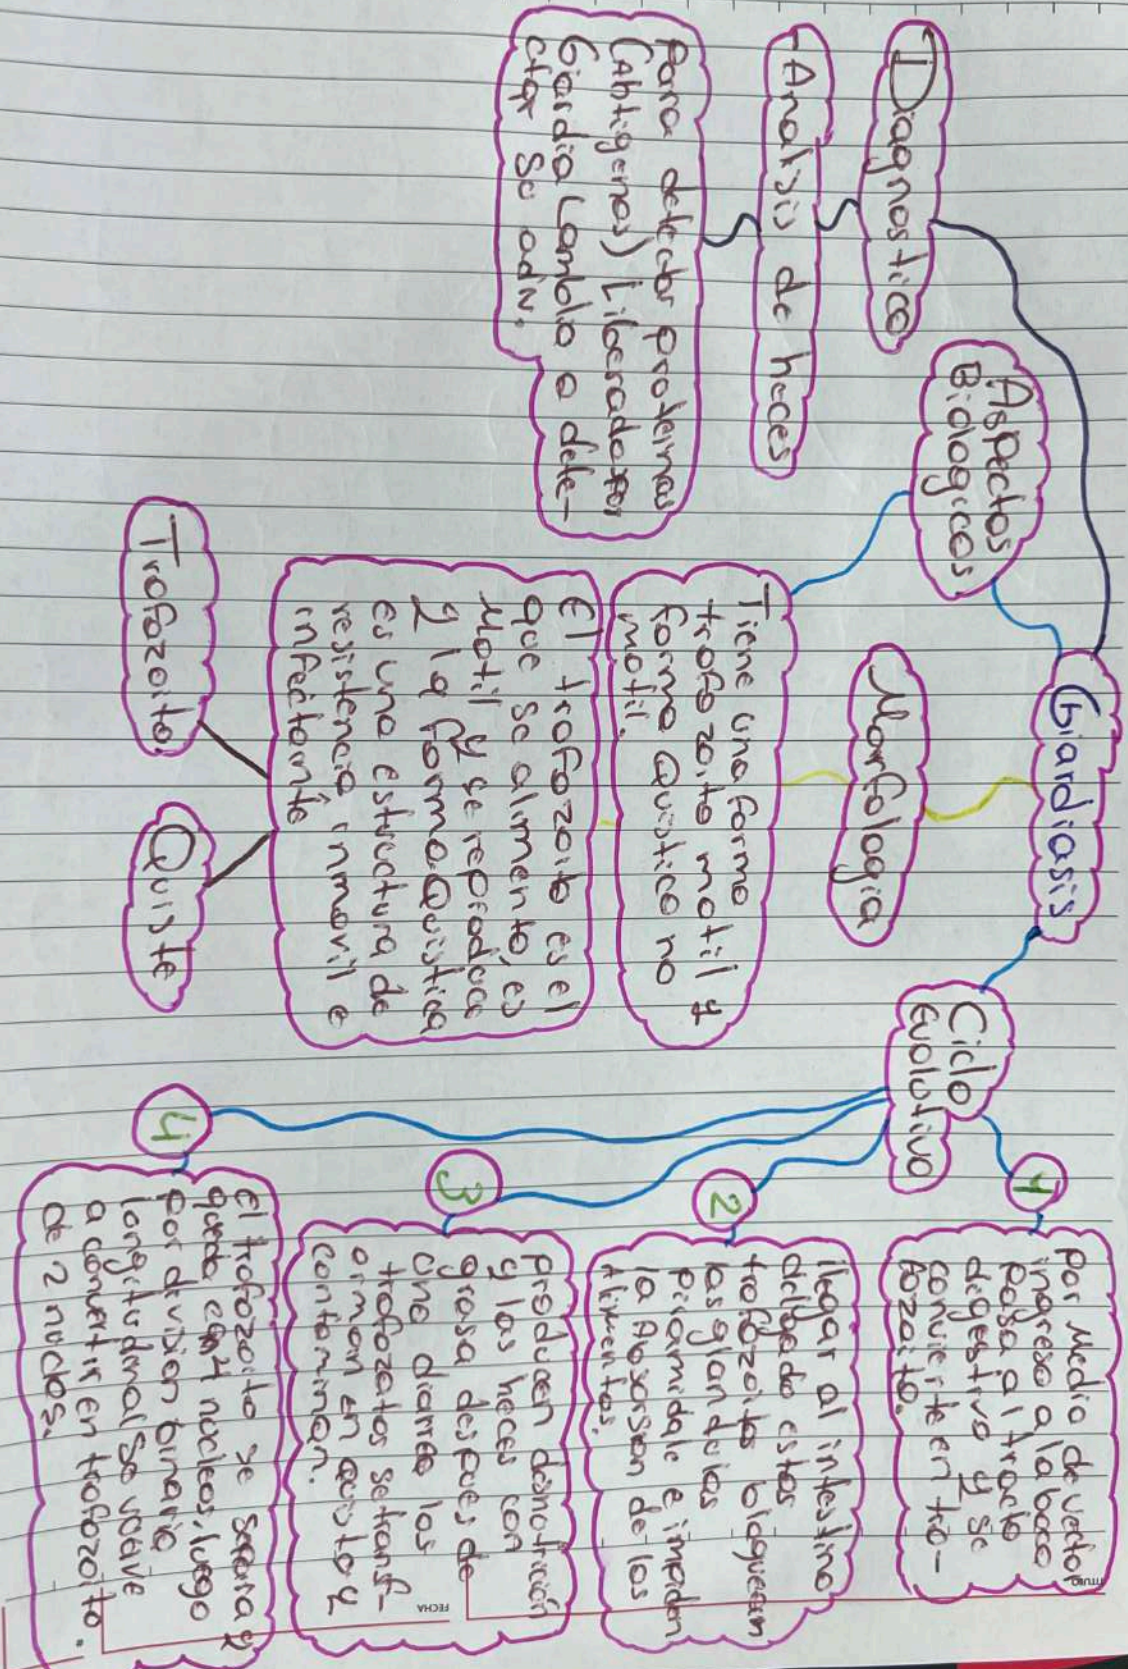 Giardiasis
Diagnostico
-Analisis de heces
Para detectar proteinas
(Antigenos) Liberada por
Giardia Lamblo o dete-
ctar su adN.
Aspectos
Biologicos
Morfologia
Tiene una forma
trofozoito motil y
forma Quistica no
motil.
El trofozoito es el
que se alimenta, es
Motil y se reproduce
y la forma Quistica
es una estructura de
resistencia inmovil e
infectante
Trofozoito.
Quiste
Ciclo
Evolutivo
1
Por Medio de vector
ingresa a la boca
pasa al tracto
digestivo y se
convierte en tro-
fozoito.
2
llegar al intestino
delgado estos
trofozoitos bloquean
las glandulas
piramidale e impiden
la Absorsion de los
Alimentos.
3
Producen desnutrición
y las heces con
grasa despues de
una diarrea los
trofozoitos se transf-
orman en quiste y
contaminan.
4
El trofozoito se separa y
queda con 4 nucleos, luego
por división binaria
longitudinal se vuelve
a convertir en trofozoito
de 2 nucleos.
TITULO
FECHA